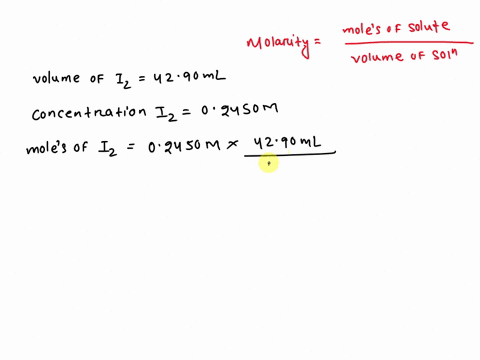 Molarity = mole's of solute / volume of solⁿ
volume of I₂ = 42.90 mL
concentration I₂ = 0.2450 M
mole's of I₂ = 0.2450 M × 42.90 mL